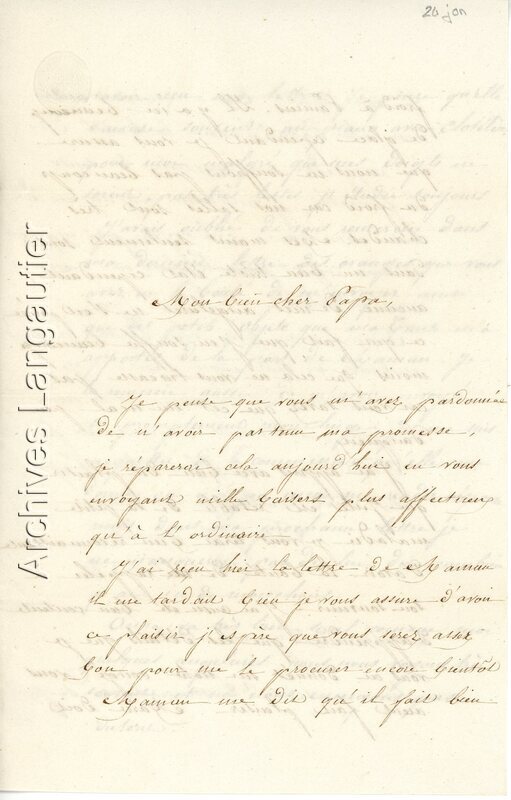 20 jan
Mon bien cher Papa,
Je pense que vous m'avez pardonnée
de n'avoir pas tenu ma promesse,
je réparerai cela aujourd'hui en vous
envoyant mille baisers plus affectueux
qu'à l'ordinaire
J'ai reçu hier la lettre de Maman
il me tardait bien je vous assure d'avoir
ce plaisir j'espère que vous serez assez
bon pour me le procurer encore bientôt
Maman me dit qu'il fait bien
Archives Langautier